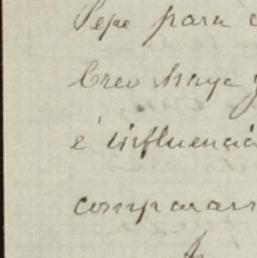 Pepe para
Creo haya
é influencia
compararn